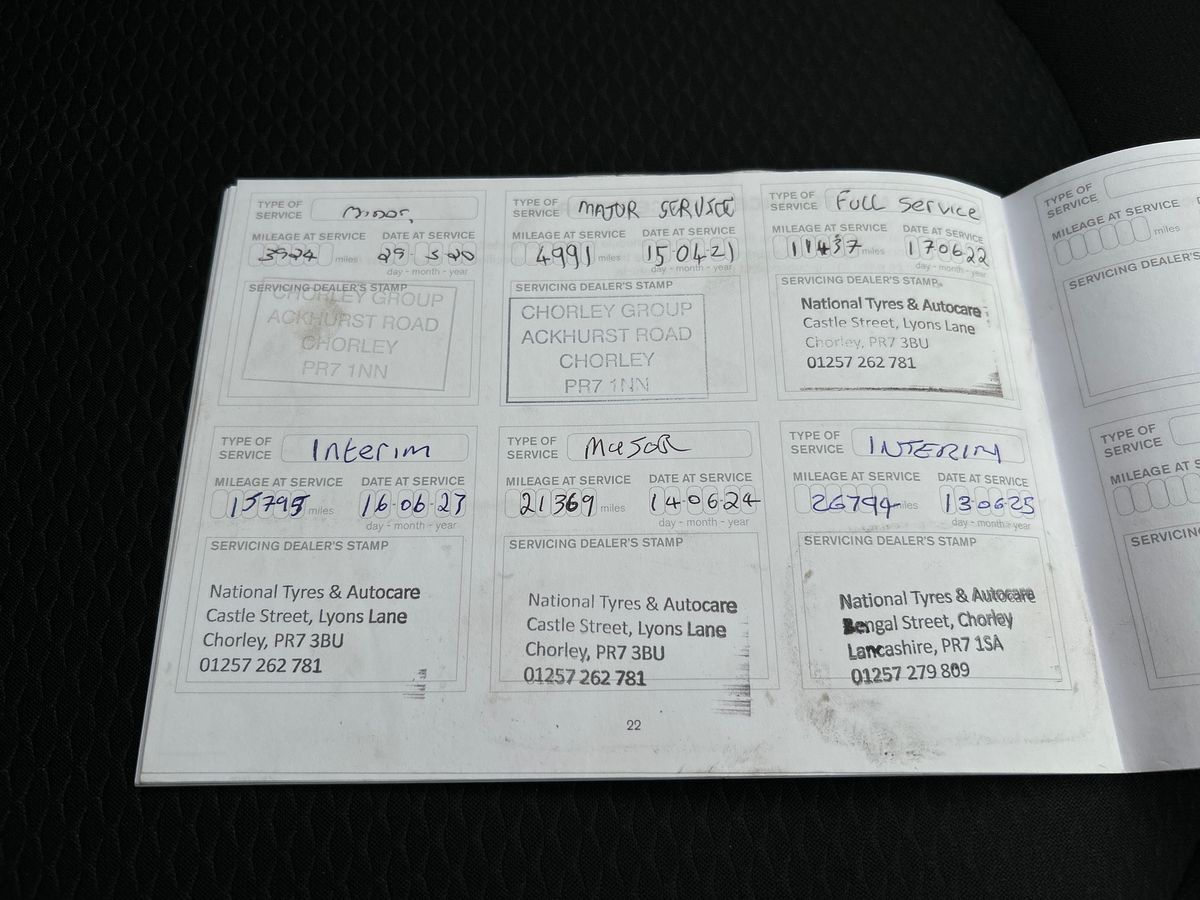 TYPE OF SERVICE Minor
MILEAGE AT SERVICE DATE AT SERVICE
3924 miles 29 · 5 · 20
day - month - year
SERVICING DEALER'S STAMP
CHORLEY GROUP
ACKHURST ROAD
CHORLEY
PR7 1NN
TYPE OF SERVICE MAJOR SERVICE
MILEAGE AT SERVICE DATE AT SERVICE
4991 miles 15·04·21
day - month - year
SERVICING DEALER'S STAMP
CHORLEY GROUP
ACKHURST ROAD
CHORLEY
PR7 1NN
TYPE OF SERVICE FULL Service
MILEAGE AT SERVICE DATE AT SERVICE
11437 miles 170622
day - month - year
SERVICING DEALER'S STAMP
National Tyres & Autocare
Castle Street, Lyons Lane
Chorley, PR7 3BU
01257 262 781
TYPE OF SERVICE Interim
MILEAGE AT SERVICE DATE AT SERVICE
15795 miles 16·06·23
day - month - year
SERVICING DEALER'S STAMP
National Tyres & Autocare
Castle Street, Lyons Lane
Chorley, PR7 3BU
01257 262 781
TYPE OF SERVICE MaJoR
MILEAGE AT SERVICE DATE AT SERVICE
21369 miles 14-06-24
day - month - year
SERVICING DEALER'S STAMP
National Tyres & Autocare
Castle Street, Lyons Lane
Chorley, PR7 3BU
01257 262 781
TYPE OF SERVICE INTERIM
MILEAGE AT SERVICE DATE AT SERVICE
26794 miles 13·06·25
day - month - year
SERVICING DEALER'S STAMP
National Tyres & Autocare
Bengal Street, Chorley
Lancashire, PR7 1SA
01257 279 809
22
TYPE OF SERVICE
MILEAGE AT SERVICE
SERVICING DEALER'S
TYPE OF SERVICE
MILEAGE AT
SERVICING